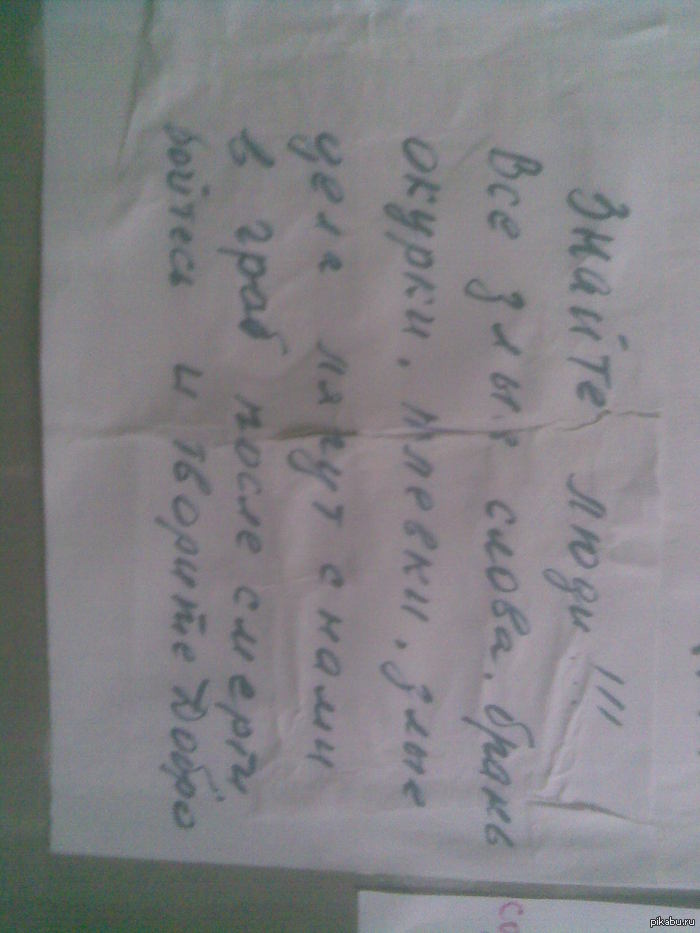 Знайте люди!!!
Все злые слова, брань
окурки, плевки, злые
дела лягут с нами
в граб после смерти
бойтесь и творите добро
со
pikabu.ru